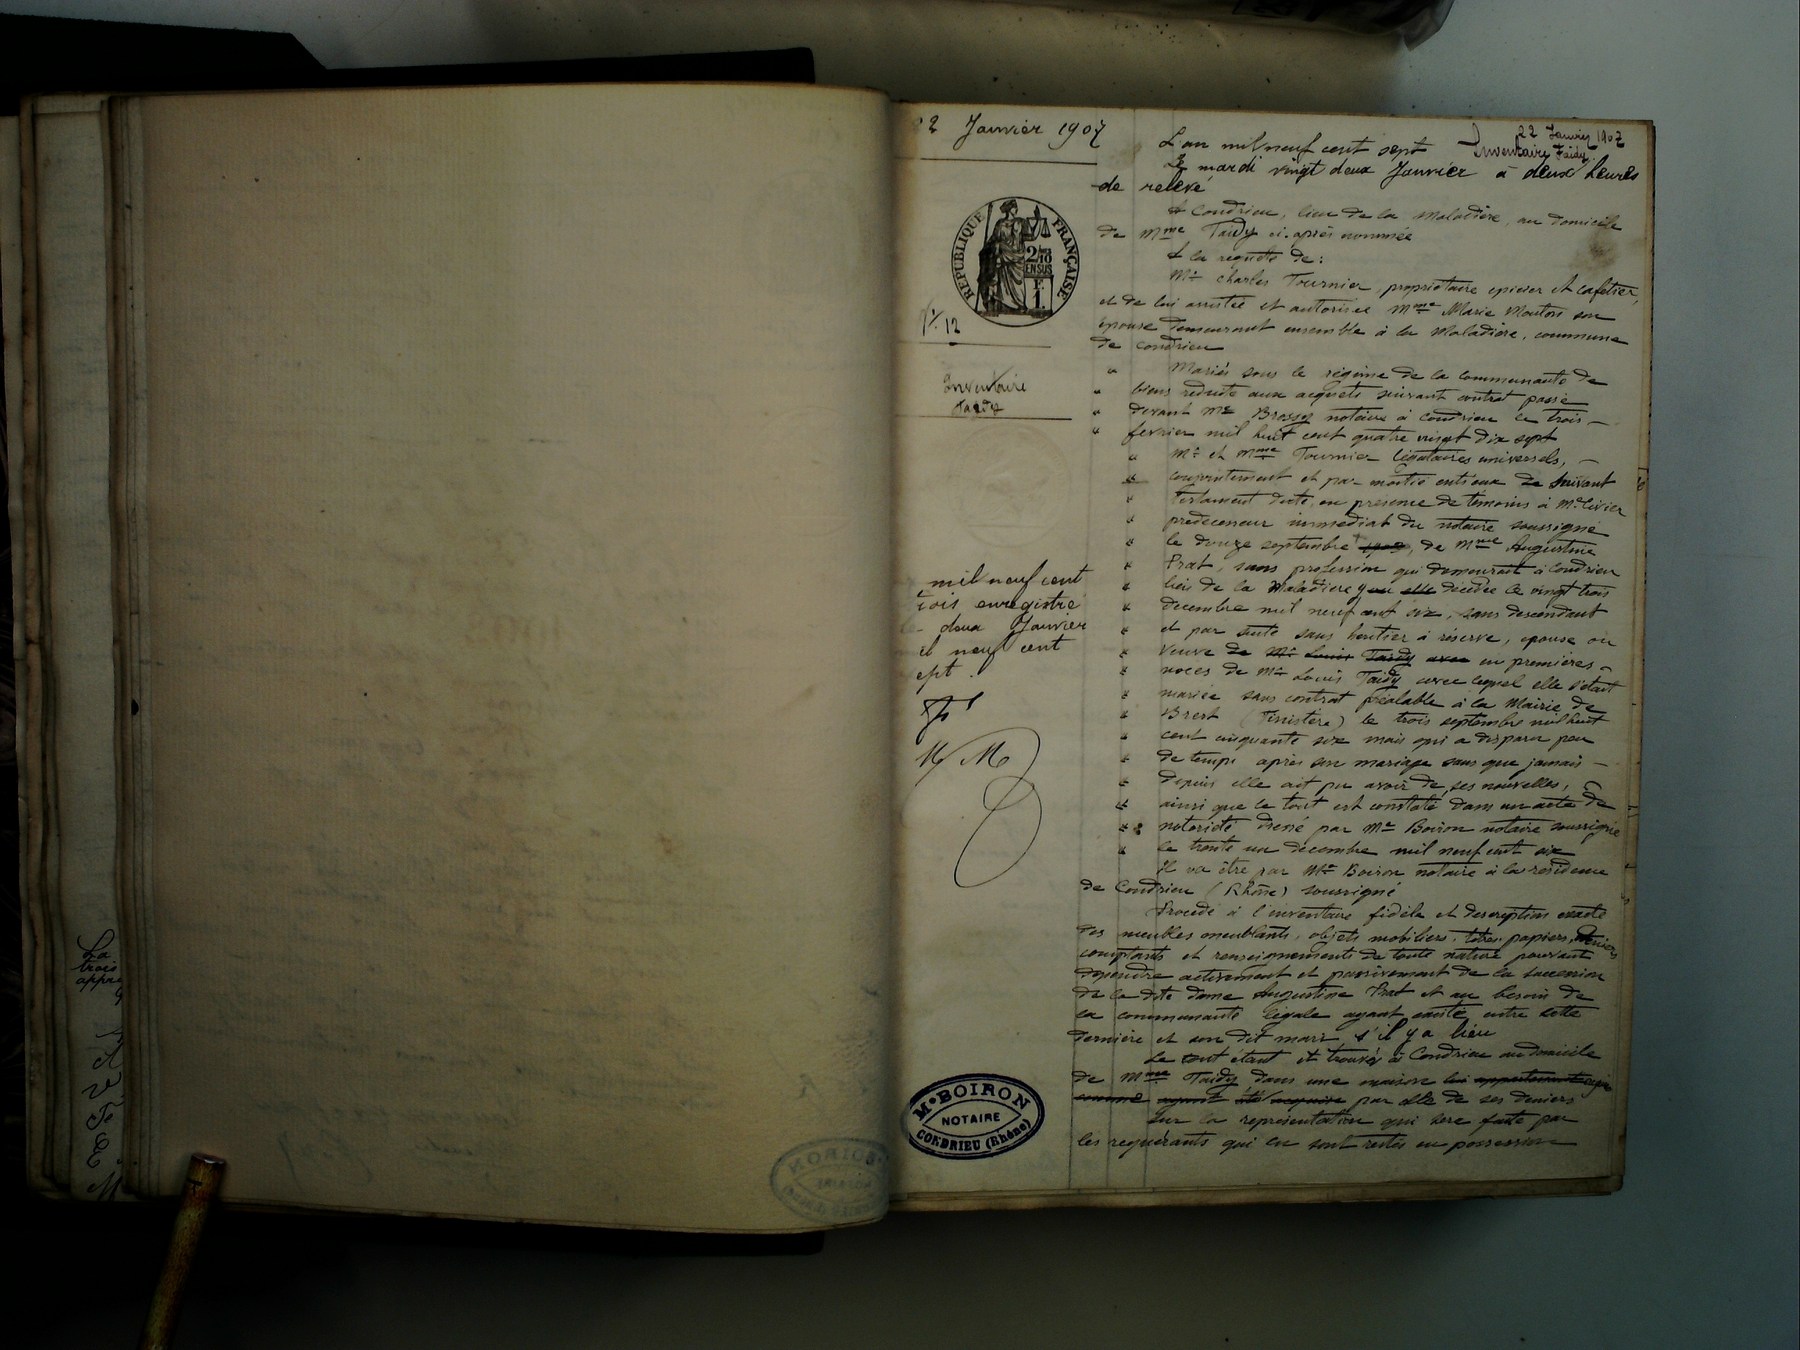 22 Janvier 1907
RÉPUBLIQUE FRANÇAISE
2/10
EN SUS
1F
No 12
Inventaire
Taidy
mil neuf cent
trois enregistré
le deux Janvier
mil neuf cent
sept.
M M
Me BOIRON
NOTAIRE
CONDRIEU (Rhône)
22 Janvier 1907
Inventaire Taidy
L'an mil neuf cent sept
Le mardi vingt deux Janvier à deux heures
de relevé
A Condrieu, lieu de la Maladière, au domicile
de Mme Taidy ci-après nommée
A la requête de:
Mr Charles Tournier, propriétaire epicier et cafetier,
et de lui assistée et autorisée Mme Marie Moutors son
épouse demeurant ensemble à la Maladière, commune
de Condrieu
" Mariés sous le régime de la communauté de
" biens réduite aux acquets suivant contrat passé
" devant Me Brossy notaire à Condrieu le trois
" fevrier mil huit cent quatre vingt dix sept
" Mr et Mme Tournier légataires universels,
" conjointement et par moitié entr'eux de suivant
" testament dicté, en présence de témoins à Me Civier
" predecesseur immediat du notaire soussigné
" le douze septembre 1903, de Mme Augustine
" Prat, sans profession qui demeurait à Condrieu
" lieu de la Maladiere, où elle décédée le vingt trois
" decembre mil neuf cent six, sans descendant
" et par suite sans heritier à réserve, epouse ou
" veuve de Mr Louis Taidy avec en premières
" noces de Mr Louis Taidy avec lequel elle s'était
" mariée sans contrat préalable à la Mairie de
" Brest (Finistère) le trois septembre mil huit
" cent cinquante six mais qui a disparu peu
" de temps après son mariage sans que jamais
" depuis elle ait pu avoir de ses nouvelles,
" ainsi que le tout est constaté dans un acte de
" notoriété dressé par Me Boiron notaire soussigné
" le trente un décembre mil neuf cent six
Il va être par Me Boiron notaire à la résidence
de Condrieu (Rhône) soussigné
Procédé à l'inventaire fidèle et description exacte
des meubles meublants, objets mobiliers, titres, papiers, deniers
comptants et renseignements de toute nature pouvant
dépendre activement et passivement de la succession
de la dite dame Augustine Prat et au besoin de
la communauté légale ayant existé entre cette
dernière et son dit mari s'il y a lieu
Le tout étant et trouvés à Condrieu au domicile
de Mme Taidy dans une maison lui appartenant
comme ayant été acquise par elle de ses deniers
Sur la représentation qui sera faite par
les requérants qui en sont restés en possession